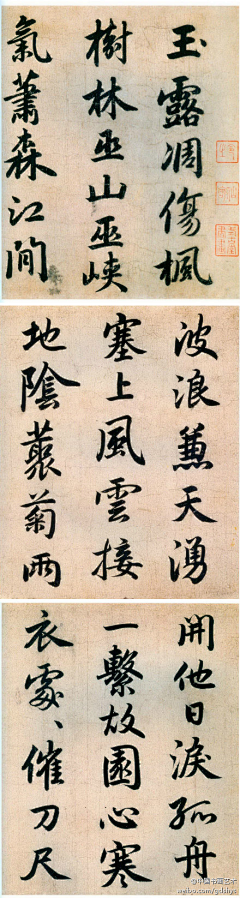 玉露凋傷楓
樹林巫山巫峽
氣蕭森江間
波浪兼天湧
塞上風雲接
地陰叢菊兩
開他日淚孤舟
一繫故園心寒
衣處〻催刀尺
@中国书画艺术
weibo.com/gdshys